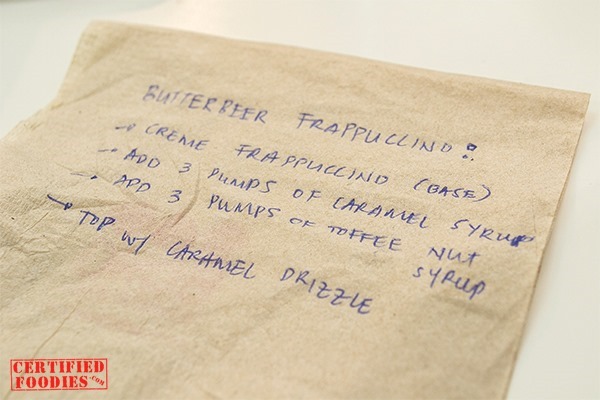 BUTTERBEER FRAPPUCCINO:
→ CREME FRAPPUCCINO (BASE)
→ ADD 3 PUMPS OF CARAMEL SYRUP
→ ADD 3 PUMPS OF TOFFEE NUT
SYRUP
→ TOP W/ CARAMEL DRIZZLE
CERTIFIED
FOODIES.com